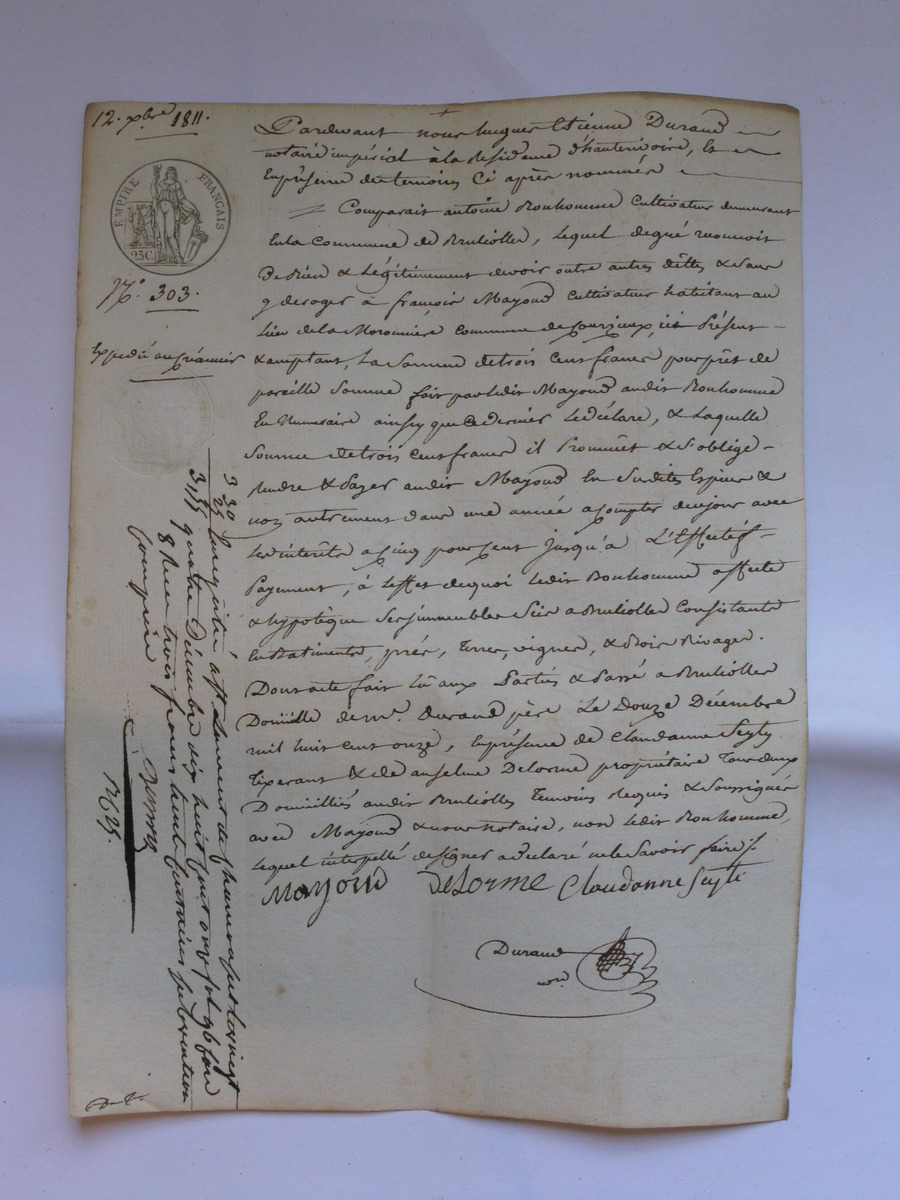 12. xbre 1811.
EMPIRE FRANÇAIS
25C
N.° 303.
Expédié au créancier
Pardevant nous hugues Etienne Durand
notaire impérial à la Résidence d'hauterivoire, Et
En présence des temoins Ci après nommés
Comparait antoine Bonhomme Cultivateur demeurant
En la Commune de Brullolles, lequel de gré reconnoit
De Bien & Légitimement devoir outre autres dêttes & sans
y deroger à françois Mayoud Cultivateur habitant au
lieu de la Moronnière Commune de Courzieux, ici Présent
& acceptant, La Somme de trois Cent francs pour prêt de
pareille Somme fait par ledit Mayoud audit Bonhomme
En Numeraire ainsy que Ce dernier le déclare, & Laquelle
Somme de trois Cent francs il Promêt & S'oblige
Rendre & Payer audit Mayoud En Susdites Espèces &
non autrement dans une année a Compter de ce jour avec
Les intérêts a cinq pour cent jusqu'à L'Effectif
Payement, à L'effet de quoi ledit Bonhomme affecte
& hypotèque Ses immeubles Sis a Brullolles Consistants
En Batiments, prés, Terres, vignes, & Bois Rivages.
Dont acte fait lû aux Parties & Passé a Brullolles
Domicille de Mr. Durand père Le Douze Décembre
mil huit cent onze, En présence de Claudanne Seyty
Tixerant & de anselme Delorme propriétaire Tous deux
Domicilliés audit Brullolles Temoins Requis & Soussignés
avec Mayoud & nous notaire, non ledit Bonhomme,
lequel interpellé de Signer a déclaré ne le Savoir faire ./.
Mayoud Delorme Claudanne Seyti
Durand
nore
3 30
25
3,55
Enregistré à St Laurent de Chamousset le vingt
quatre Décembre dix huit cent onze fol 96
Reçu trois francs trente Centimes Subvention
Comprise
N 625.